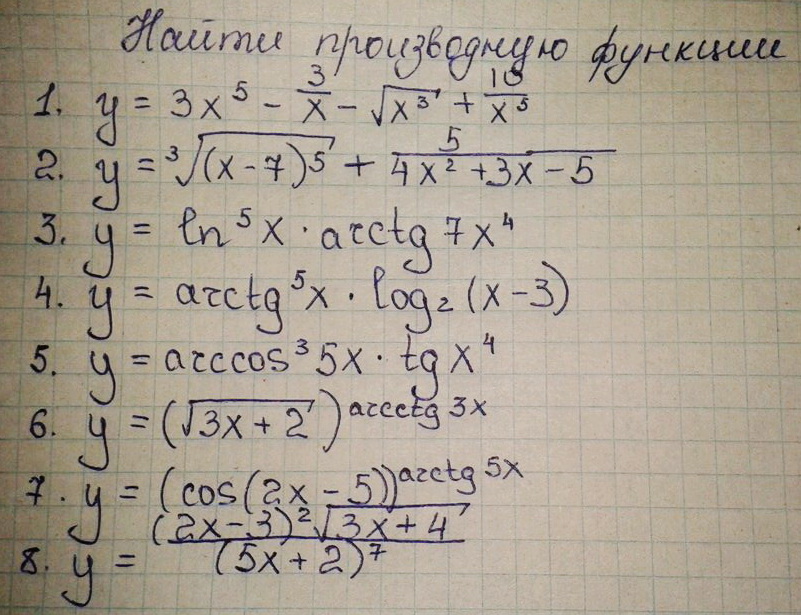 Найти производную функции
1. y = 3x⁵ - 3/x - √x³ + 10/x⁵
2. y = ³√(x-7)⁵ + 5/(4x²+3x-5)
3. y = ln⁵x · arctg 7x⁴
4. y = arctg⁵x · log₂(x-3)
5. y = arccos³5x · tg x⁴
6. y = (√3x+2)^arcctg 3x
7. y = (cos(2x-5))^arctg 5x
8. y = (2x-3)²√3x+4/(5x+2)⁷